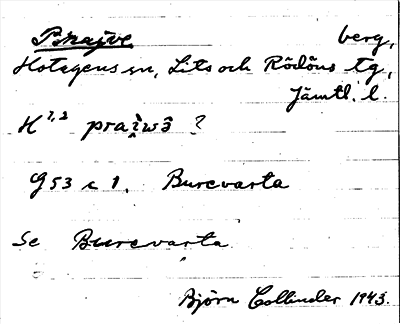 Prajve berg,
Hotagens sn, Lits och Rödöns tg,
Jämtl. l.
K 7,2 praì̯wə̂ ?
G 53 c 1. Burevarta
Se Burevarta
Björn Collinder 1943.